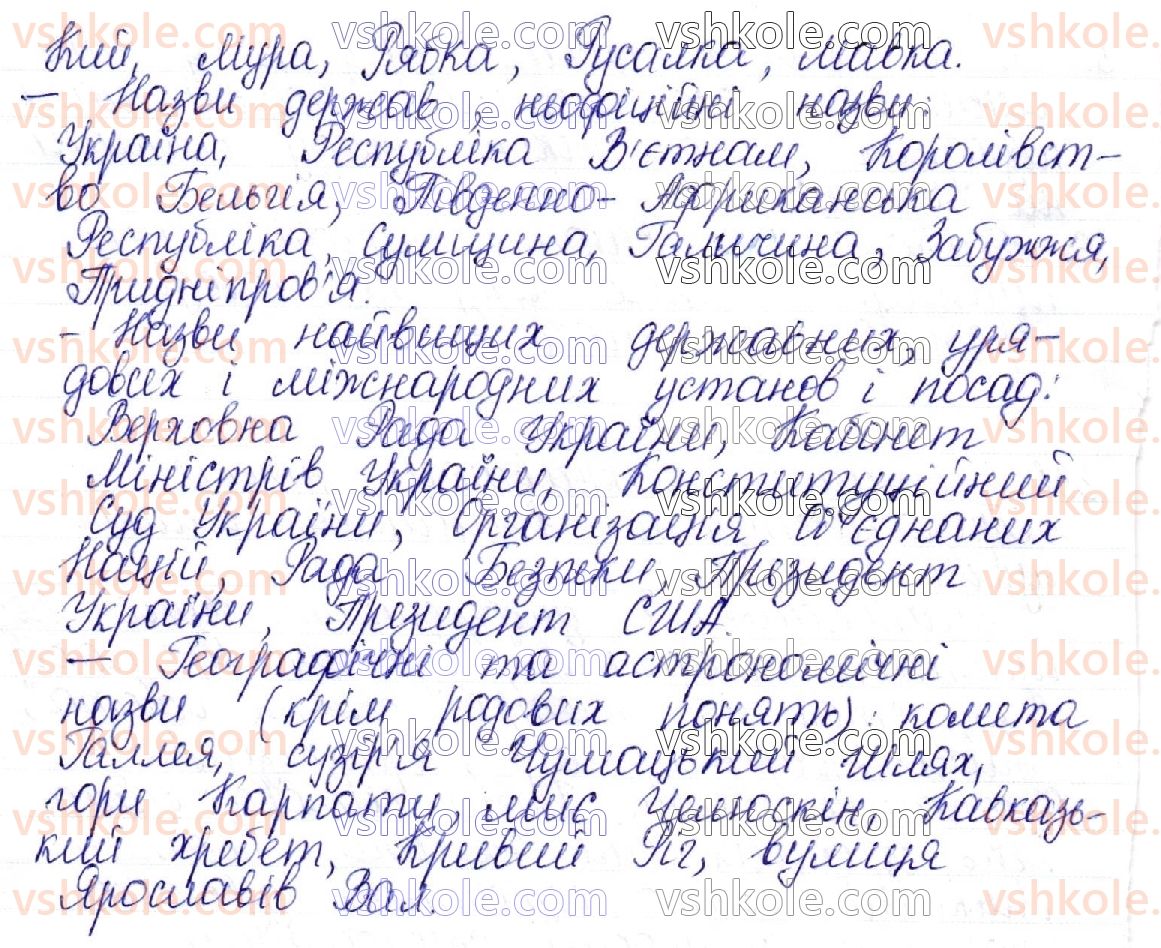 Кий, Мура, Рябка, Русалка, Мавка.
— Назви держав, неофіційні назви:
Україна, Республіка В'єтнам, Королівст-
во Бельгія, Південно-Африканська
Республіка, Сумщина, Галичина, Забужжя,
Придніпров'я.
- Назви найвищих державних, уря-
дових і міжнародних установ і посад:
Верховна Рада України, Кабінет
Міністрів України, Конституційний
Суд України, Організація Об'єднаних
Націй, Рада Безпеки, Президент
України, Президент США.
— Географічні та астрономічні
назви (крім родових понять): комета
Галлея, сузір'я Чумацький Шлях,
гори Карпати, мис Челюскін, Кавказь-
кий хребет, Кривий Ріг, вулиця
Ярославів Вал.
vshkole.com